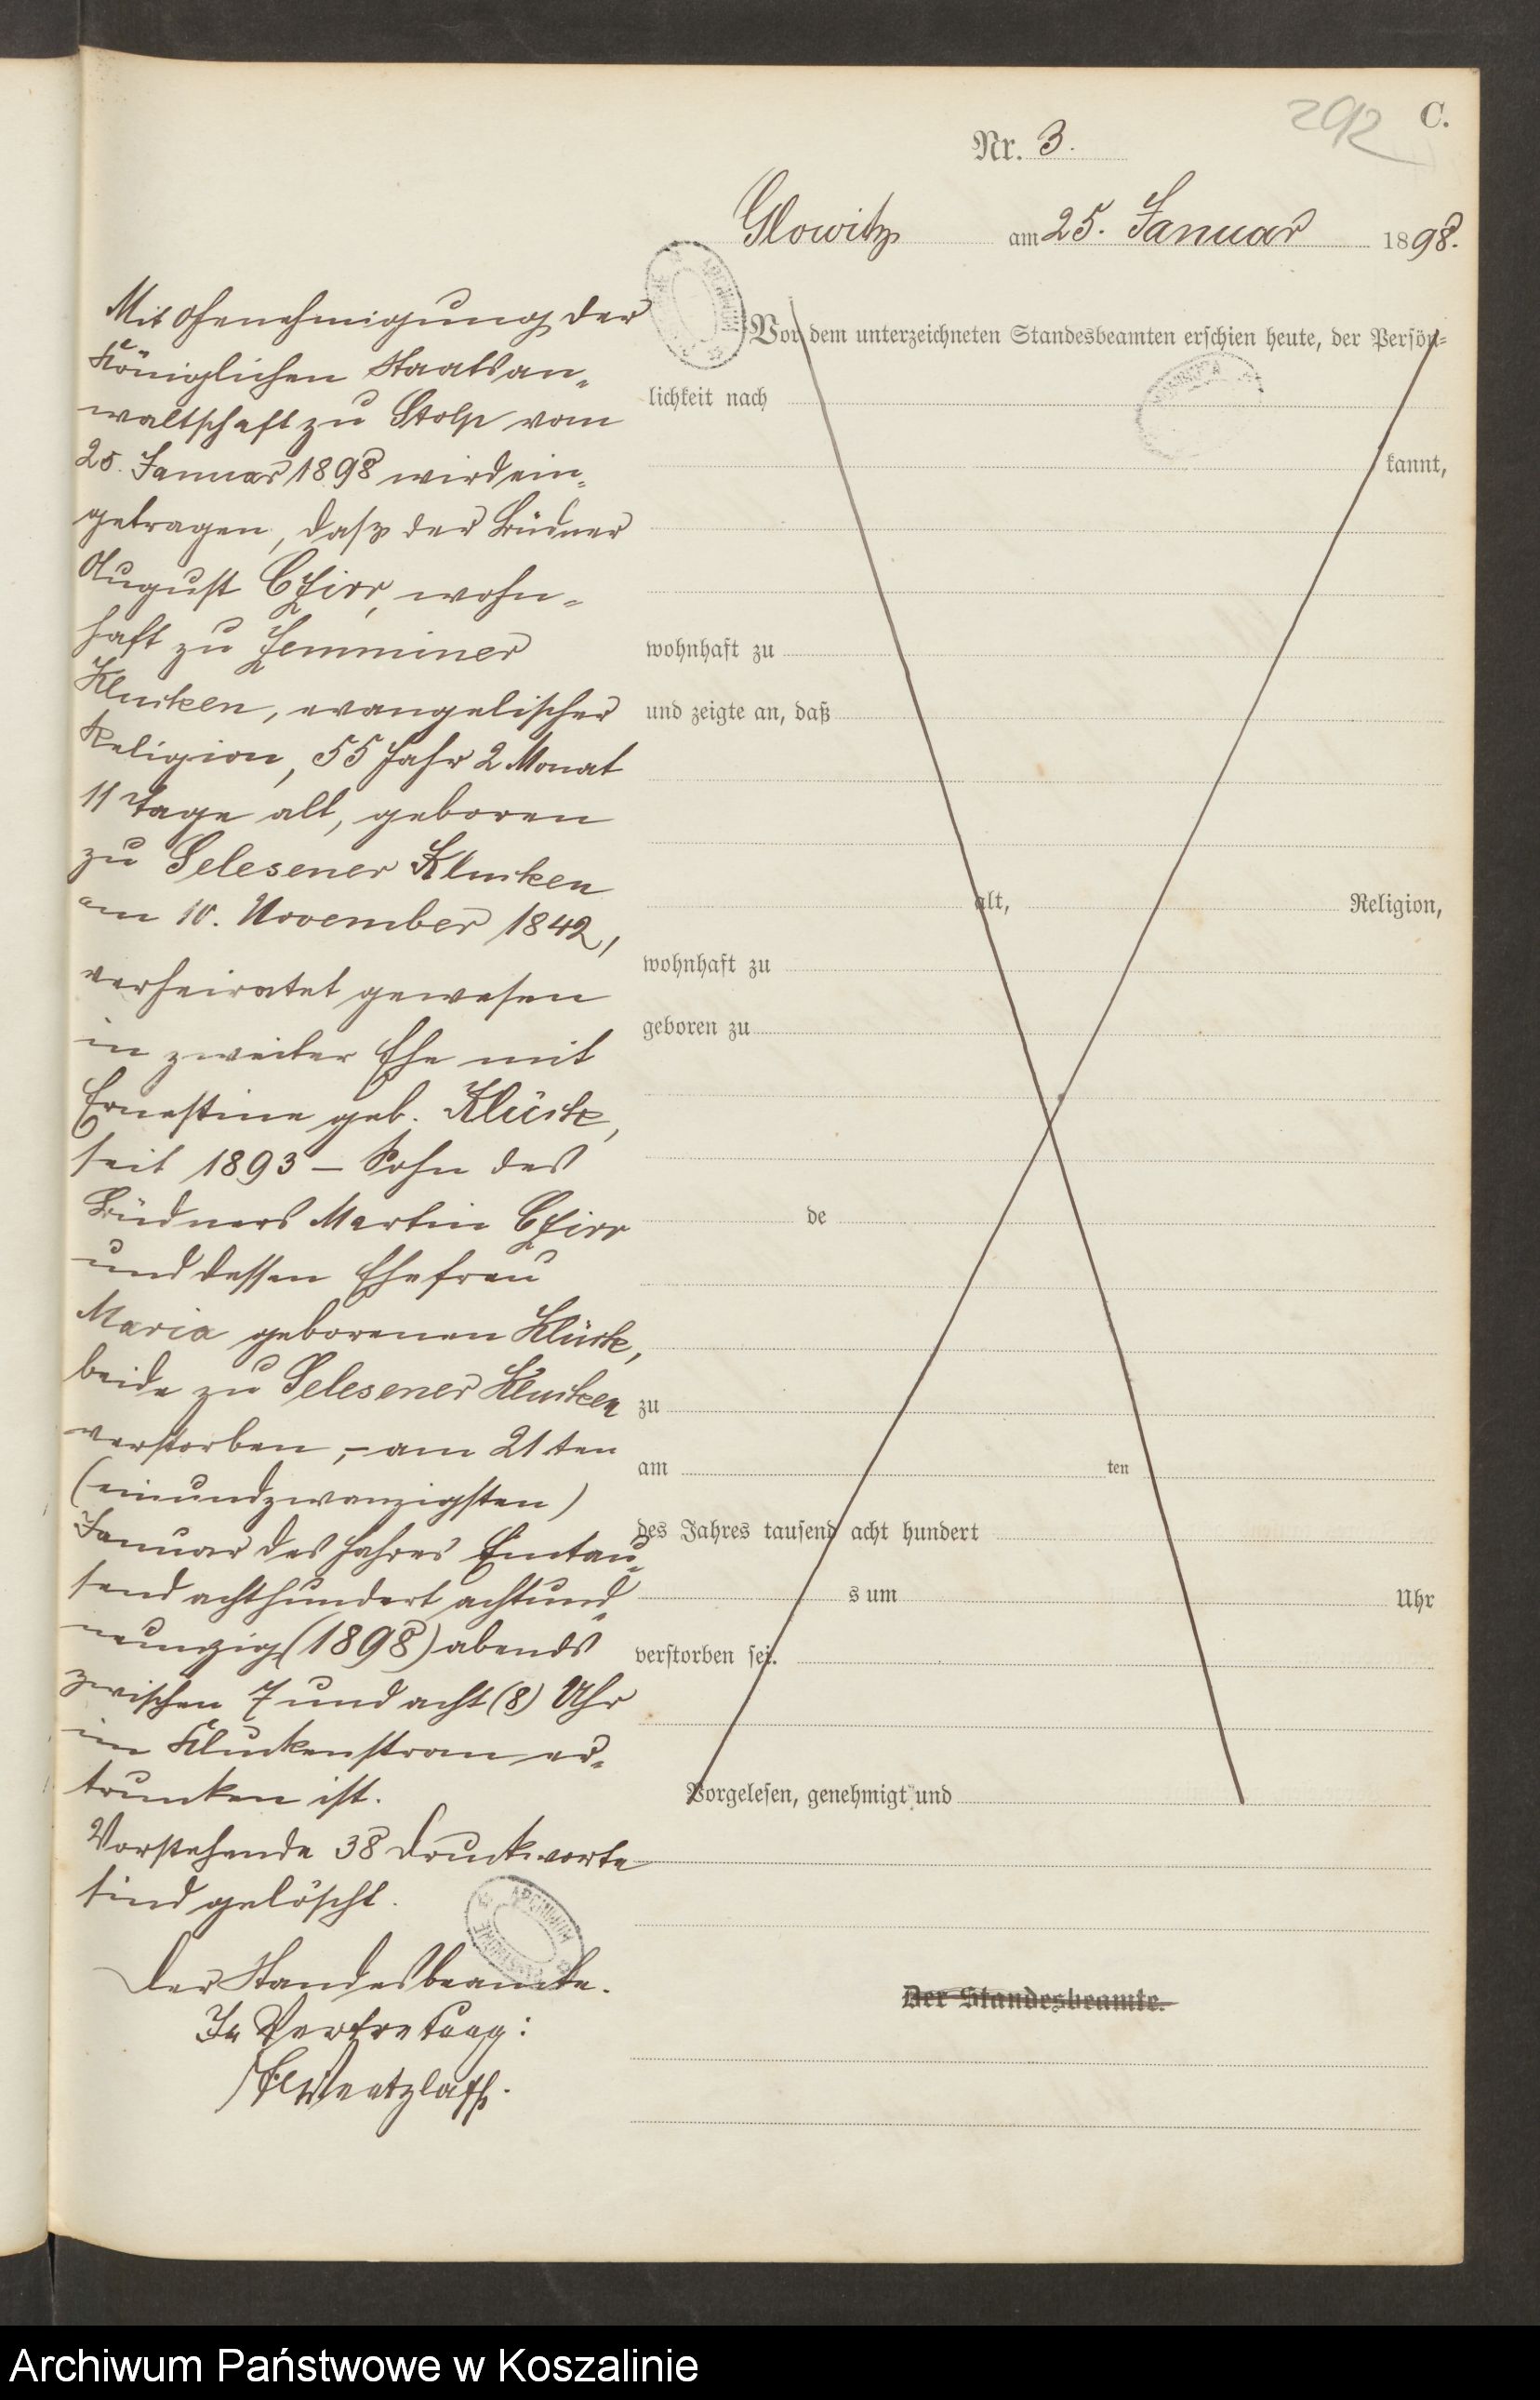 292
C.
Nr. 3.
Glowitz am 25. Januar 1898.
Mit Genehmigung der
Königlichen Staatsan-
waltschaft zu Stolp vom
25. Januar 1898 wird ein-
getragen, daß der Büdner
August Czirr, wohn-
haft zu Zemminer
Klucken, evangelischer
Religion, 55 Jahr 2 Monat
11 Tage alt, geboren
zu Selesener Klucken
am 10. November 1842,
verheiratet gewesen
in zweiter Ehe mit
Ernestine geb. Klück,
seit 1893 – Sohn des
Büdners Martin Czirr
und dessen Ehefrau
Maria geborenen Klück,
beide zu Selesener Klucken
verstorben, – am 21ten
(einundzwanzigsten)
Januar des Jahres Eintau-
send achthundert achtund-
neunzig (1898) abends
zwischen 7 und acht (8) Uhr
im Kluckenstrom er-
trunken ist.
Vorstehende 38 Druckworte
sind gelöscht.
Der Standesbeamte.
In Vertretung:
Wentzlaff.
Vor dem unterzeichneten Standesbeamten erschien heute, der Persön-
lichkeit nach
kannt,
wohnhaft zu
und zeigte an, daß
alt, Religion,
wohnhaft zu
geboren zu
de
zu
am ten
des Jahres tausend acht hundert
s um Uhr
verstorben sei.
Vorgelesen, genehmigt und
Der Standesbeamte.
Archiwum Państwowe w Koszalinie